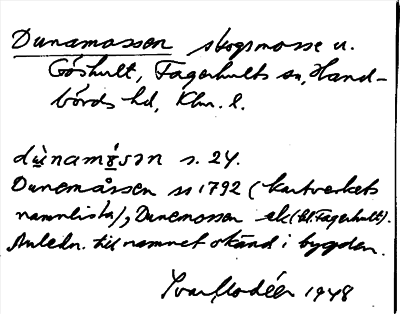 Dunamossen skogsmosse u.
Göshult, Fagerhults sn, Hand-
börds hd, Klm. l.
dùnamǫ̀sən s. 24.
Dunemåssen sr 1792 (kartverkets
namnlista), Dunemossen ek (bl. Fagerhult).
Anledn. till namnet okänd i bygden.
Yvar Modéer 1948